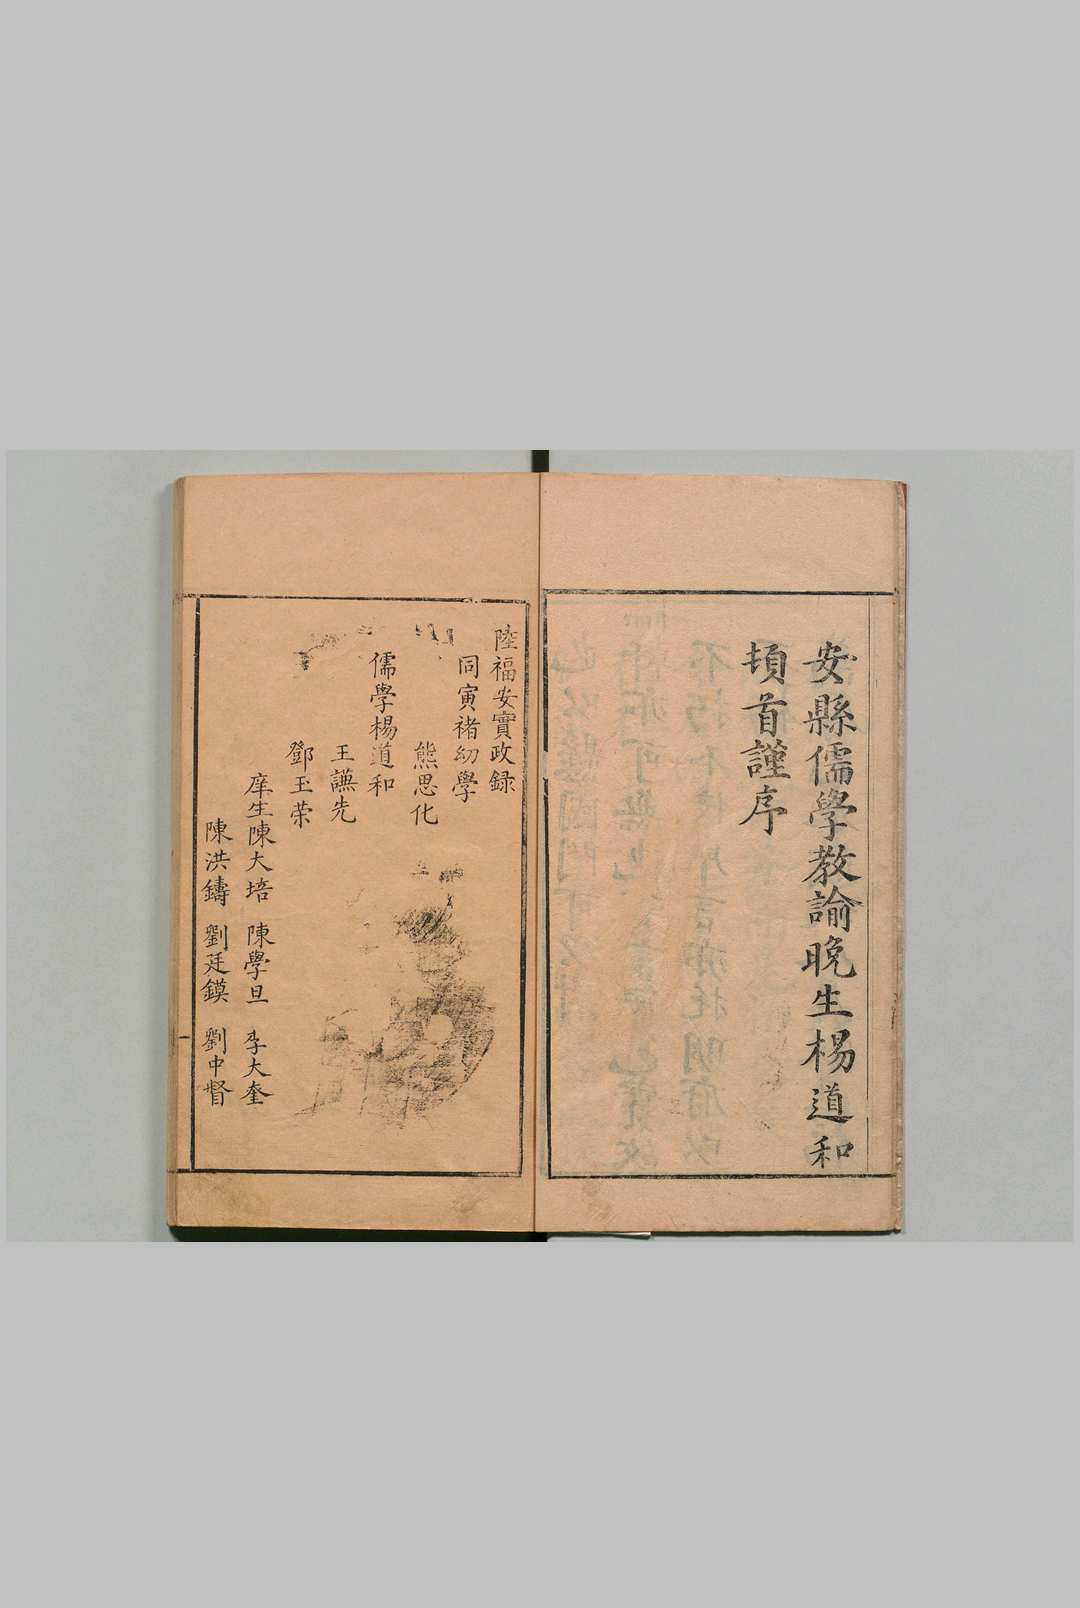 安縣儒學教諭晚生楊道和
頓首謹序
陸福安實政録
同寅褚幼學
熊思化
儒學楊道和
王謙先
鄧玉荣
庠生陳大培 陳學旦 李大奎
陳洪鑄 劉廷鏌 劉中督